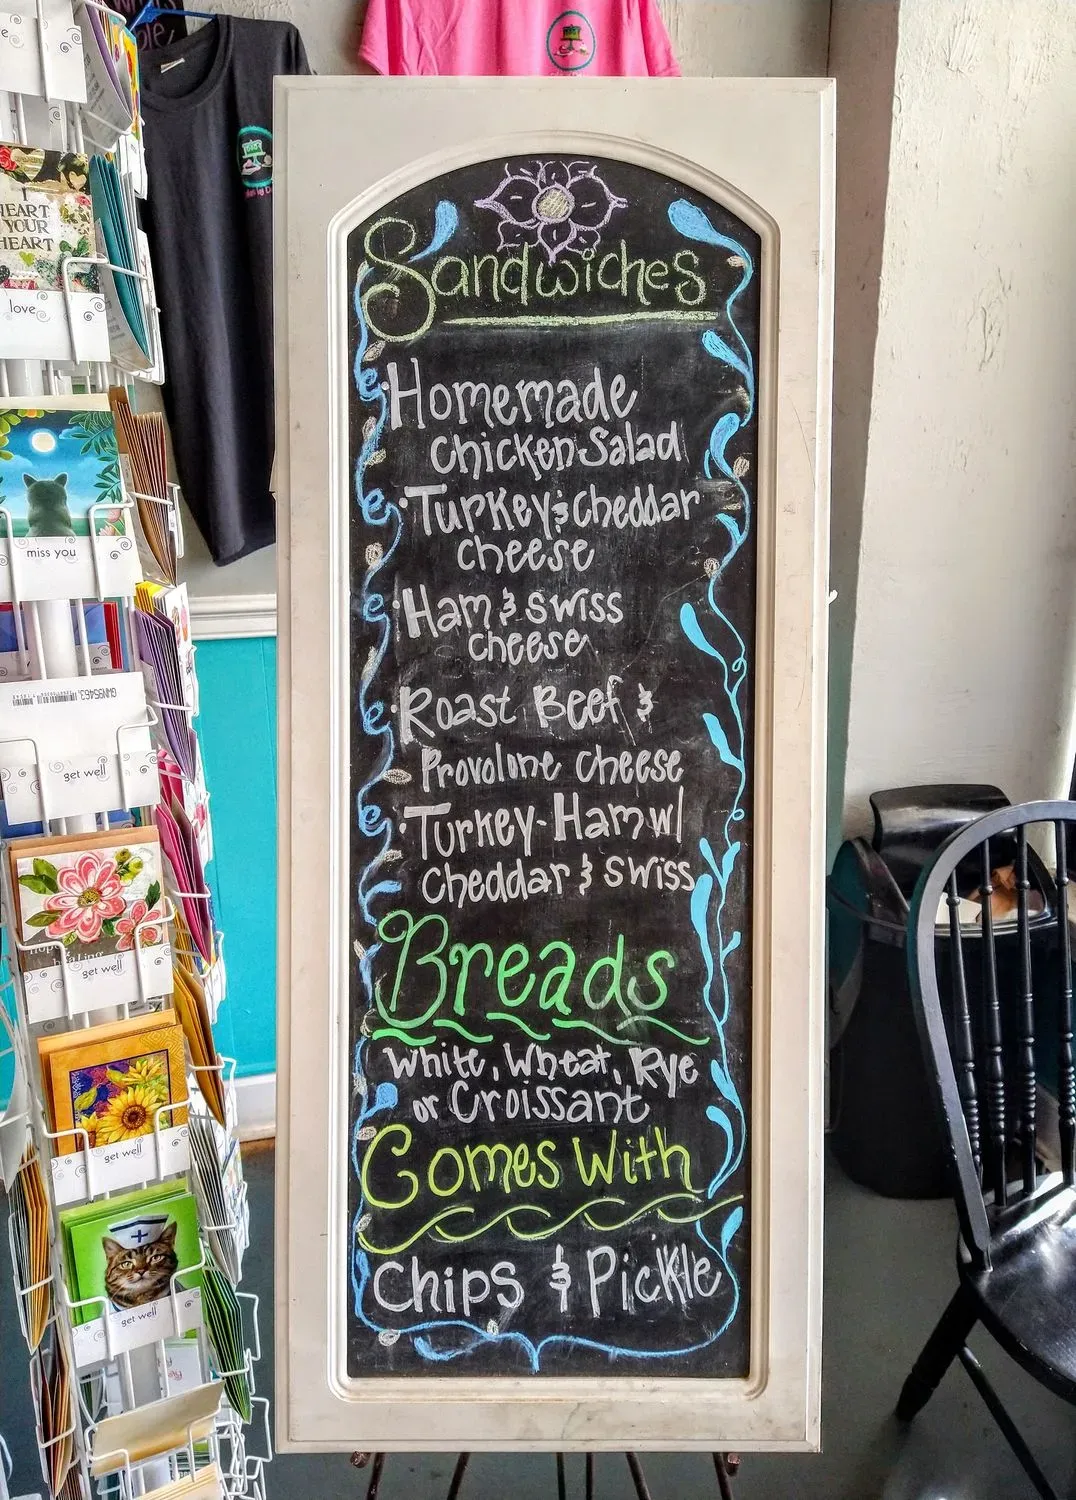 Sandwiches
• Homemade
Chicken Salad
• Turkey & cheddar
cheese
• Ham & swiss
cheese
• Roast Beef &
Provolone cheese
• Turkey-Ham w/
cheddar & swiss
Breads
white, Wheat, Rye
or Croissant
Comes With
Chips & Pickle
I
HEART
YOUR
HEART
love
miss you
get well
get well
get well
get well